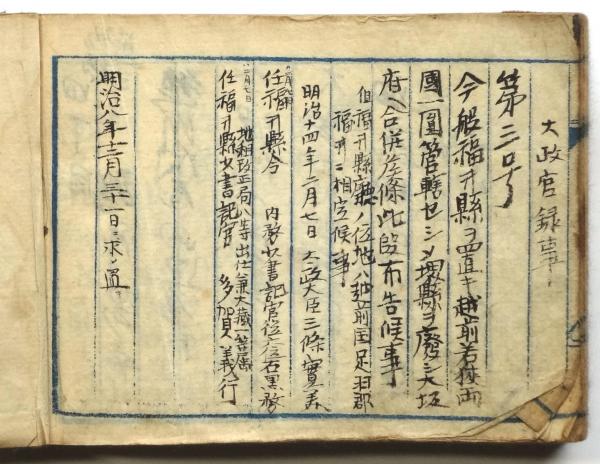 太政官録事
第三号
今般福井縣ヲ置キ越前若狭両
國一圓管轄セシメ堺縣ヲ廃シ大坂
府ヘ合併候條此段布告候事
但福井縣廳ノ位地ハ越前国足羽郡
福井ニ相定候事
明治十四年二月七日 太政大臣三條實美
任福井縣令 内務少書記官従六位石黒務
二月七日 地租改正局八等出仕兼大蔵一等属
任福井縣少書記官 多賀義行
明治八年十二月三十一日求ノ置